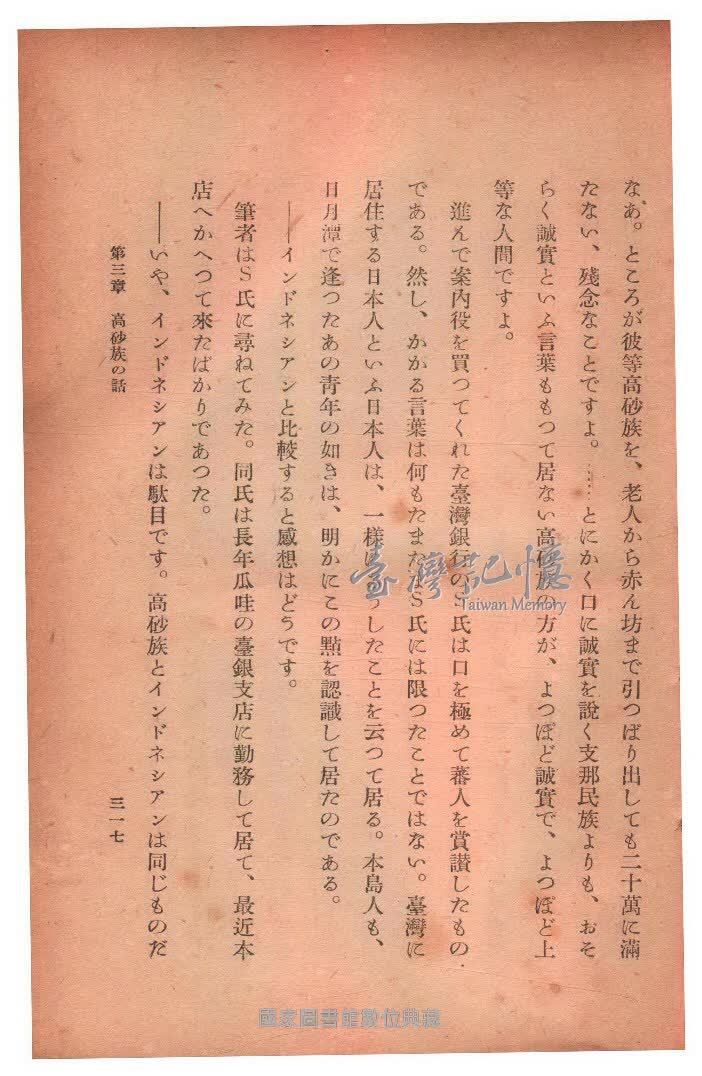 なあ。ところが彼等高砂族を、老人から赤ん坊まで引つぱり出しても二十萬に滿
たない、殘念なことですよ。……とにかく口に誠實を說く支那民族よりも、おそ
らく誠實といふ言葉ももつて居ない高砂族の方が、よつぽど誠實で、よつぽど上
等な人間ですよ。
進んで案內役を買つてくれた臺灣銀行のS氏は口を極めて蕃人を賞讃したもの
である。然し、かかる言葉は何もたまたまS氏には限つたことではない。臺灣に
居住する日本人といふ日本人は、一樣にうしたことを云つて居る。本島人も、
日月潭で逢つたあの靑年の如きは、明かにこの點を認識して居たのである。
――インドネシアンと比較すると感想はどうです。
筆者はS氏に尋ねてみた。同氏は長年瓜哇の臺銀支店に勤務して居て、最近本
店へかへつて來たばかりであつた。
――いや、インドネシアンは駄目です。高砂族とインドネシアンは同じものだ
第三章 高砂族の話
三一七
臺灣記憶
Taiwan Memory
國家圖書館數位典藏